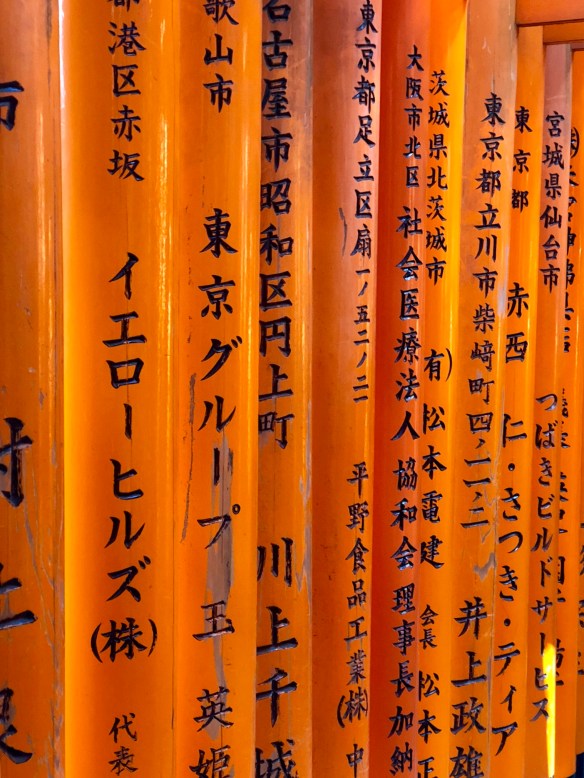 宮城県仙台市 つばきビルドサービス
東京都 赤西 仁・さつき・ティア
東京都立川市柴﨑町四ノ二一ノ二 井上政雄
茨城県北茨城市 有)松本電建 会長 松本正
大阪市北区 社会医療法人 協和会 理事長 加納
東京都足立区扇一ノ五二ノ二二 平野食品工業(株) 中
名古屋市昭和区円上町 川上千城
歌山市 東京グループ 玉 英姫
都港区赤坂 イエローヒルズ(株) 代表
市 村上